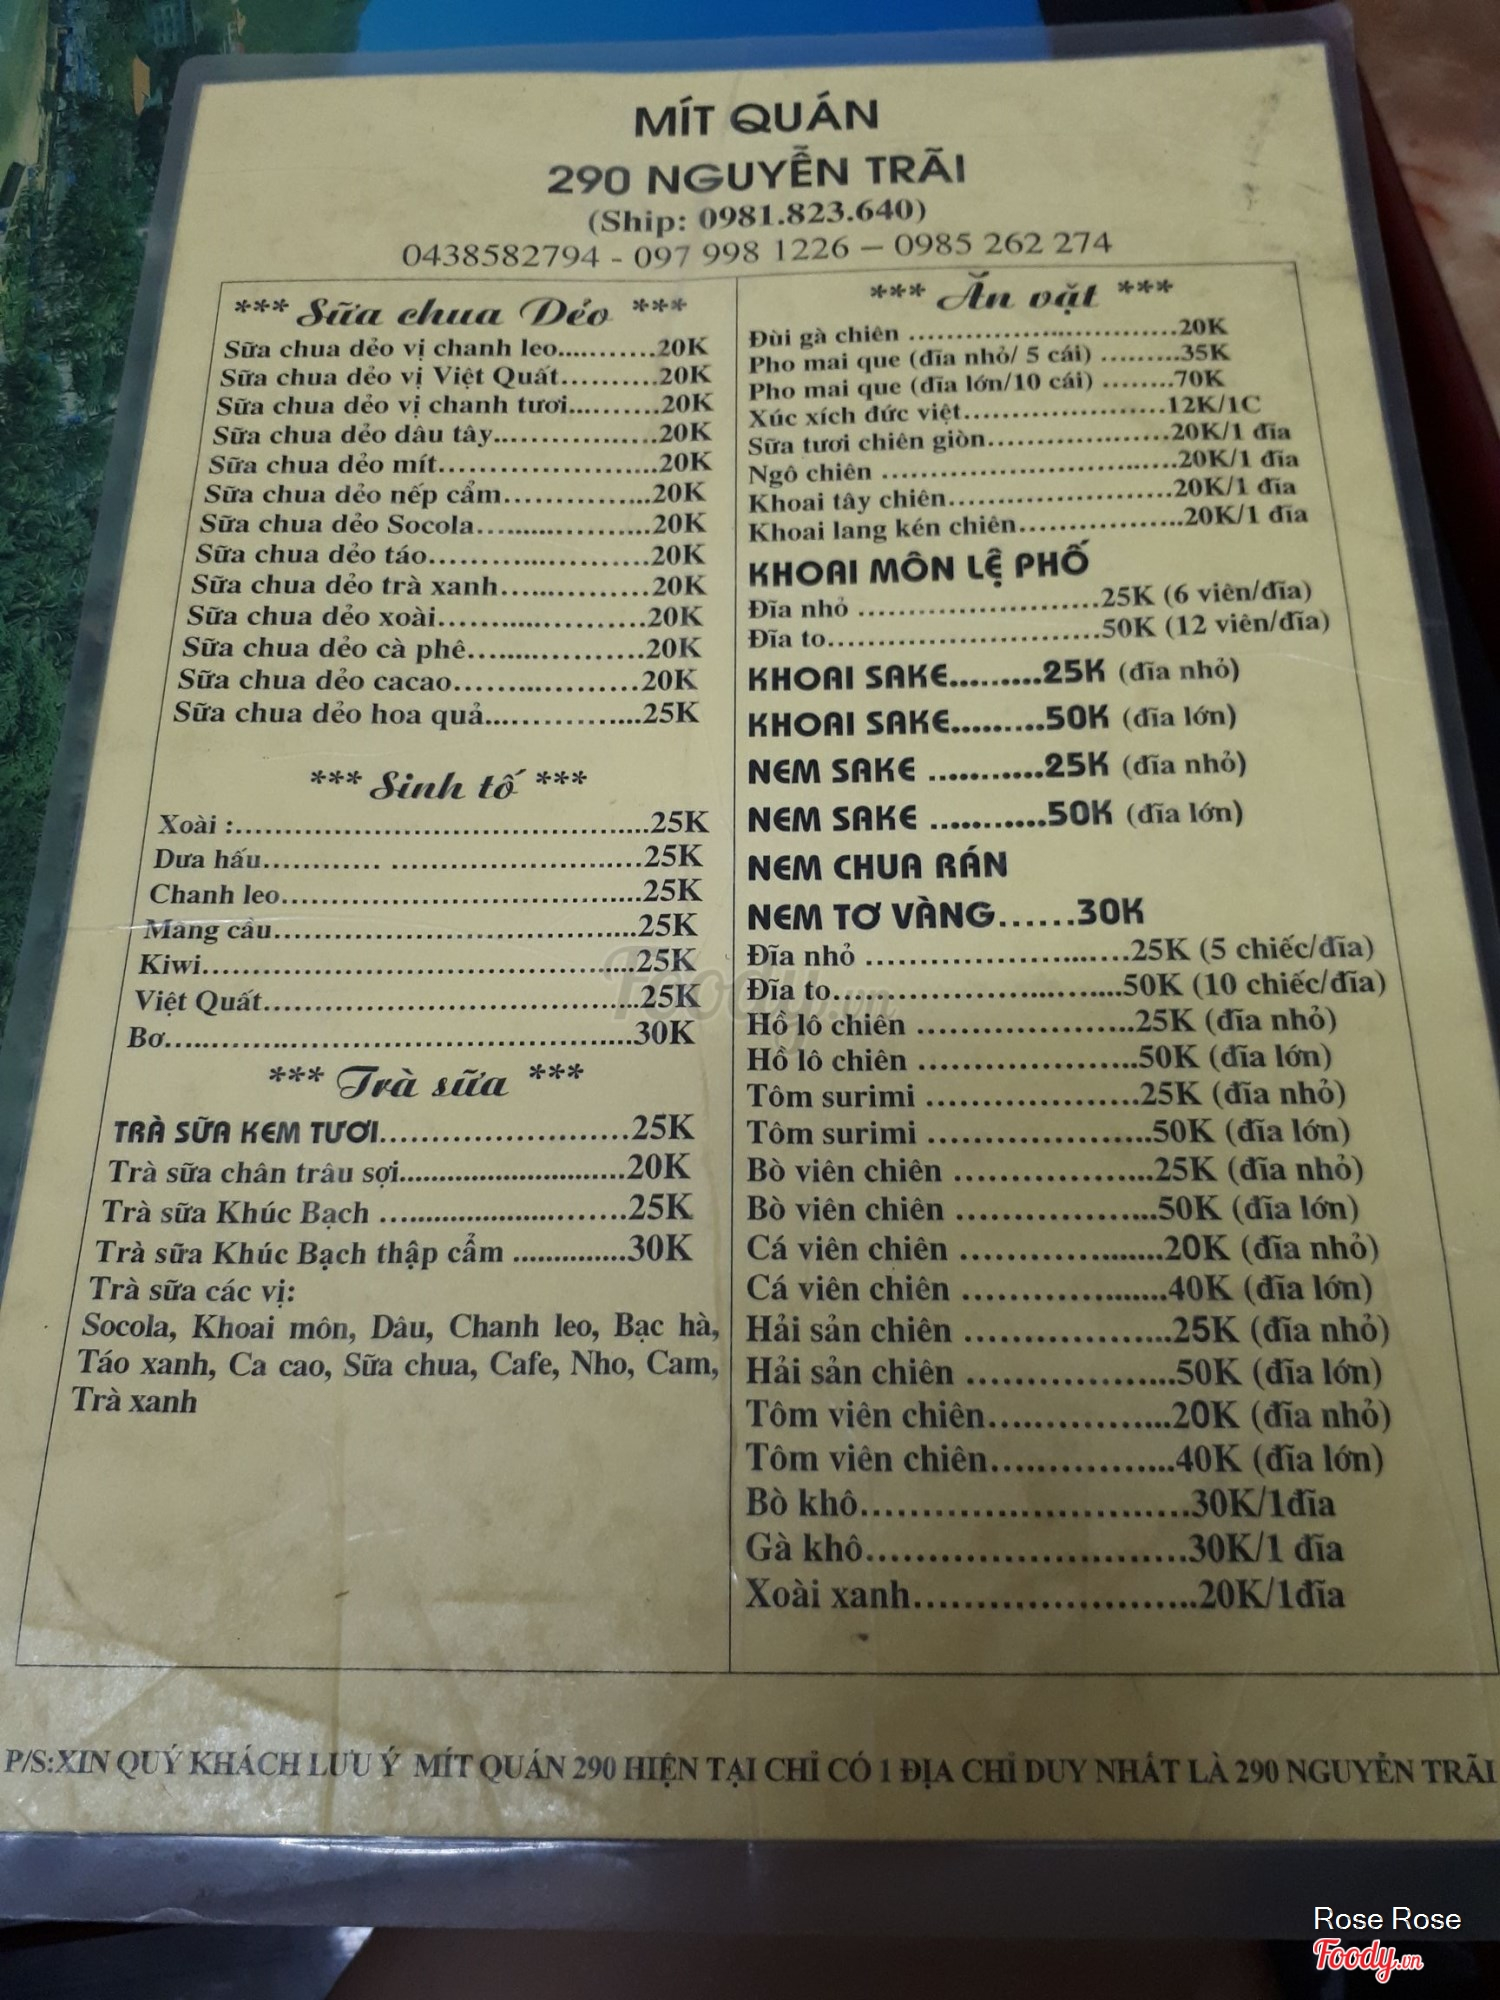 MÍT QUÁN
290 NGUYỄN TRÃI
(Ship: 0981.823.640)
0438582794 - 097 998 1226 – 0985 262 274
*** Sữa chua Dẻo ***
Sữa chua dẻo vị chanh leo.............20K
Sữa chua dẻo vị Việt Quất..........20K
Sữa chua dẻo vị chanh tươi............20K
Sữa chua dẻo dâu tây....................20K
Sữa chua dẻo mít..........................20K
Sữa chua dẻo nếp cẩm..................20K
Sữa chua dẻo Socola.....................20K
Sữa chua dẻo táo...........................20K
Sữa chua dẻo trà xanh..................20K
Sữa chua dẻo xoài.........................20K
Sữa chua dẻo cà phê.....................20K
Sữa chua dẻo cacao.......................20K
Sữa chua dẻo hoa quả...................25K
*** Sinh tố ***
Xoài :..........................................25K
Dưa hấu............ ..........................25K
Chanh leo.....................................25K
Mãng cầu.....................................25K
Kiwi............................................25K
Việt Quất......................................25K
Bơ...............................................30K
*** Trà sữa ***
TRÀ SỮA KEM TƯƠI..........................25K
Trà sữa chân trâu sợi.............................20K
Trà sữa Khúc Bạch ............................25K
Trà sữa Khúc Bạch thập cẩm ..............30K
Trà sữa các vị:
Socola, Khoai môn, Dâu, Chanh leo, Bạc hà,
Táo xanh, Ca cao, Sữa chua, Cafe, Nho, Cam,
Trà xanh
*** Ăn vặt ***
Đùi gà chiên .............................20K
Pho mai que (đĩa nhỏ/ 5 cái) .........35K
Pho mai que (đĩa lớn/10 cái) ........70K
Xúc xích đức việt.....................12K/1C
Sữa tươi chiên giòn...................20K/1 đĩa
Ngô chiên ..............................20K/1 đĩa
Khoai tây chiên........................20K/1 đĩa
Khoai lang kén chiên.................20K/1 đĩa
KHOAI MÔN LỆ PHỐ
Đĩa nhỏ ..........................25K (6 viên/đĩa)
Đĩa to.............................50K (12 viên/đĩa)
KHOAI SAKE.........25K (đĩa nhỏ)
KHOAI SAKE.........50K (đĩa lớn)
NEM SAKE ...........25K (đĩa nhỏ)
NEM SAKE ...........50K (đĩa lớn)
NEM CHUA RÁN
NEM TƠ VÀNG......30K
Đĩa nhỏ .........................25K (5 chiếc/đĩa)
Đĩa to............................50K (10 chiếc/đĩa)
Hồ lô chiên ....................25K (đĩa nhỏ)
Hồ lô chiên ....................50K (đĩa lớn)
Tôm surimi ....................25K (đĩa nhỏ)
Tôm surimi .....................50K (đĩa lớn)
Bò viên chiên ..................25K (đĩa nhỏ)
Bò viên chiên ..................50K (đĩa lớn)
Cá viên chiên ..................20K (đĩa nhỏ)
Cá viên chiên ..................40K (đĩa lớn)
Hải sản chiên ..................25K (đĩa nhỏ)
Hải sản chiên ..................50K (đĩa lớn)
Tôm viên chiên................20K (đĩa nhỏ)
Tôm viên chiên................40K (đĩa lớn)
Bò khô............................30K/1đĩa
Gà khô............................30K/1 đĩa
Xoài xanh........................20K/1đĩa
P/S:XIN QUÝ KHÁCH LƯU Ý MÍT QUÁN 290 HIỆN TẠI CHỈ CÓ 1 ĐỊA CHỈ DUY NHẤT LÀ 290 NGUYỄN TRÃI
Foody.vn
Rose Rose
Foody.vn